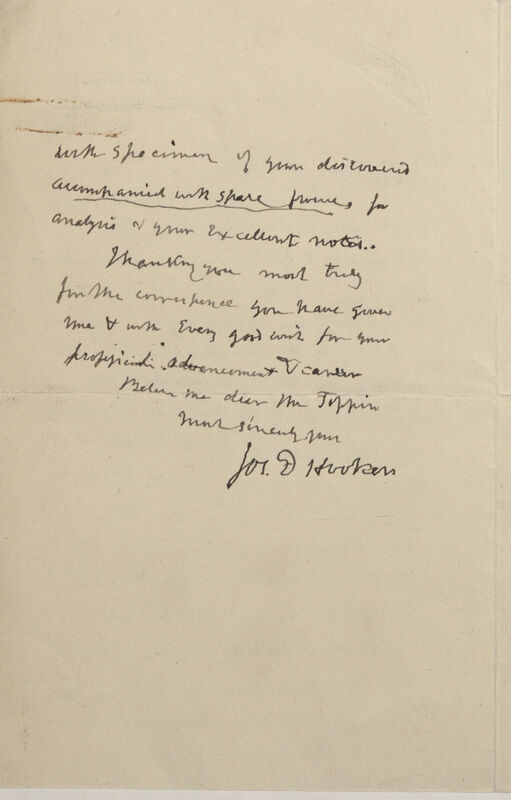 with specimen of your discoveries
accompanied with spare flowers for
analysis & your Excellent notes.
Thanking you most truly
for the corresponce you have given
me & with Every good wish for your
advancement & career
Believe me dear Mr Toppin
most sincerely your
Jos. D Hooker